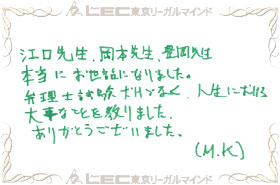 LEC東京リーガルマインド
江口先生、岡本先生、豊岡先生
本当にお世話になりました。
弁理士試験だけでなく、人生における
大事なことを教りました。
ありがとうございました。
(M.K)
LEC東京リーガルマインド